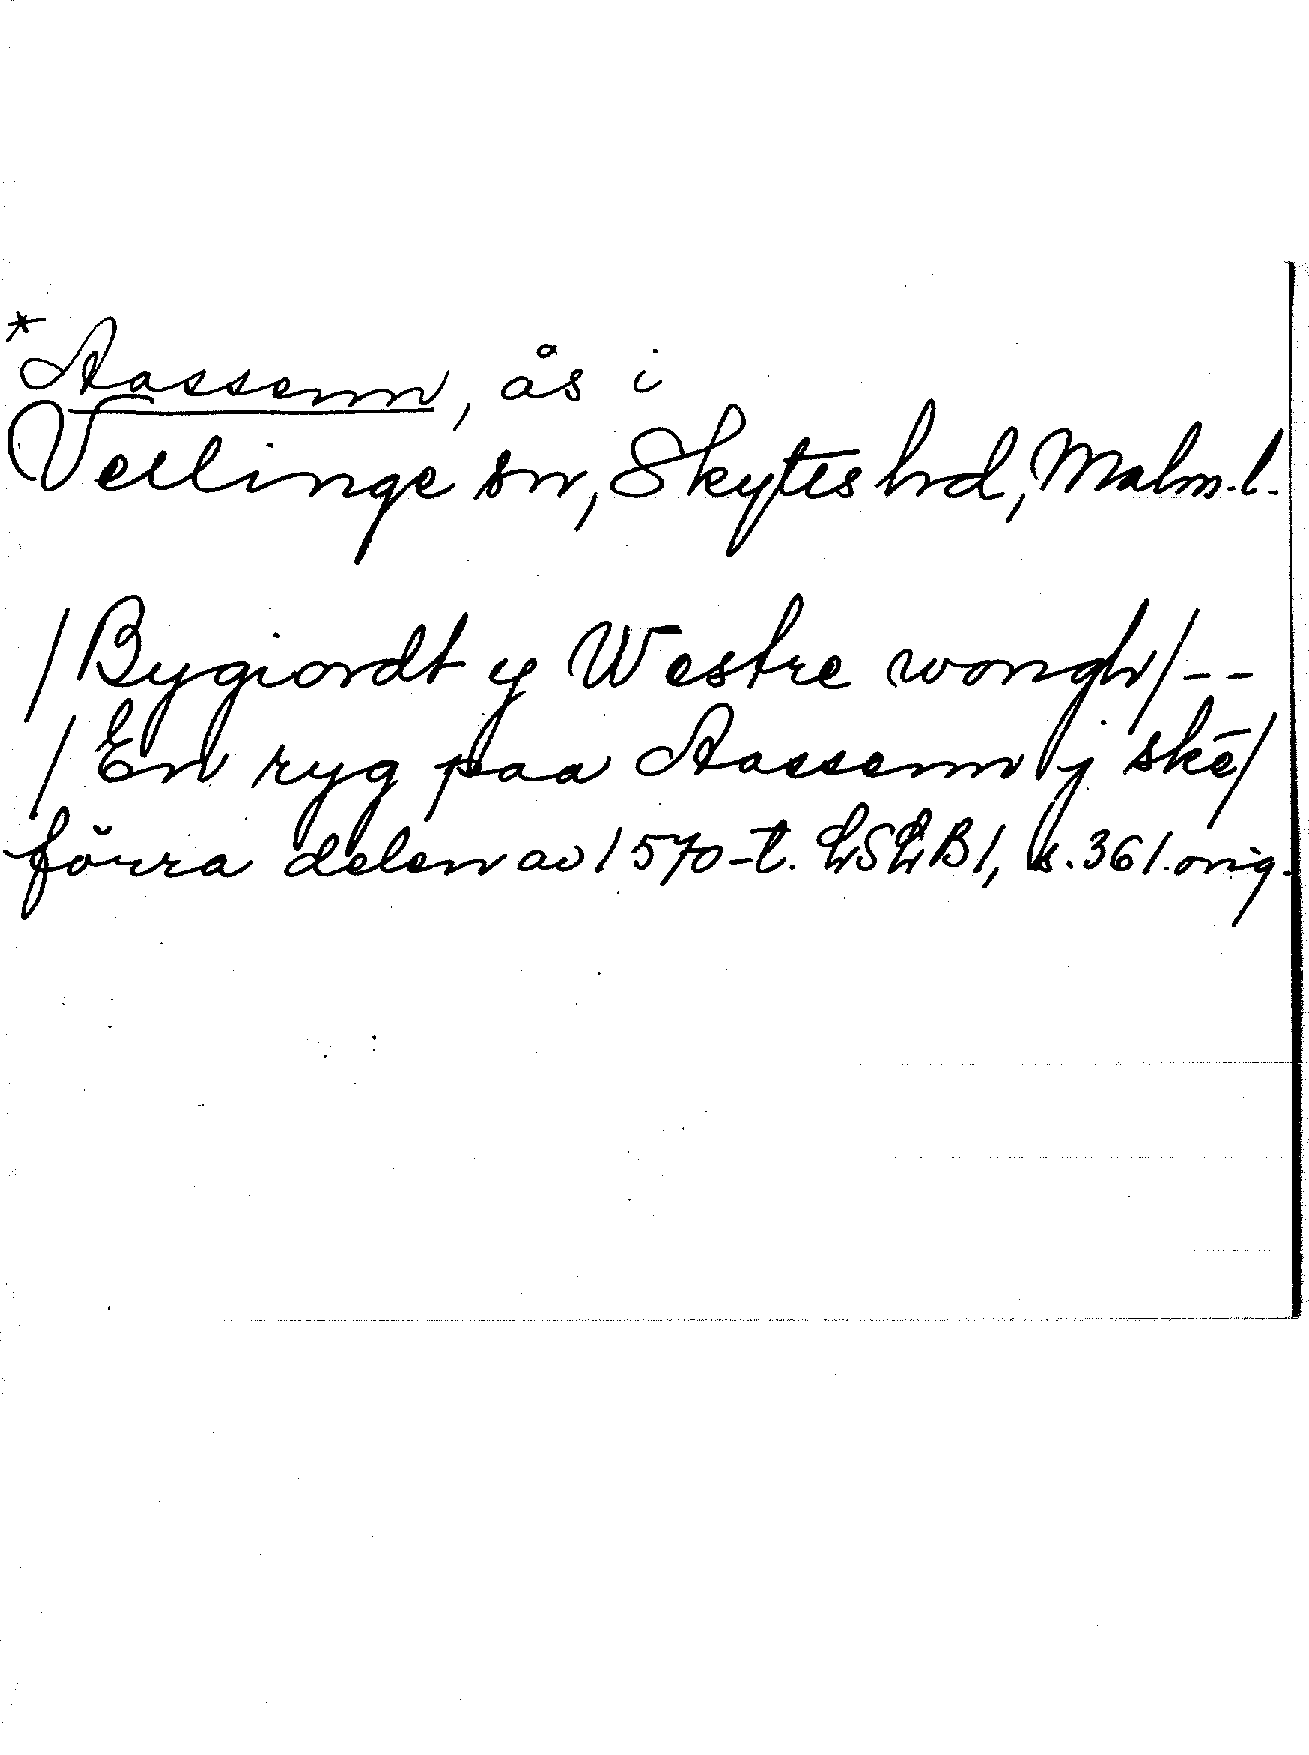 *Aassenn, ås i
Vellinge sn, Skytts hrd, Malm.l.
/Bygiordt y Westre wongh/--
/En ryg paa Aassenn j skē/
förra delen av 1570-t. LSLB1, s.361.orig.